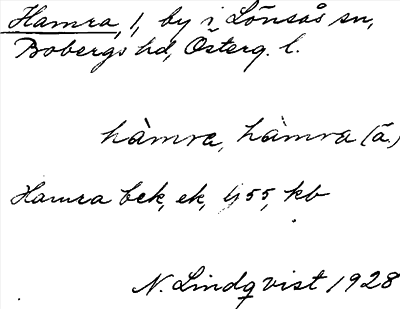 Hamra, 1, by i Lönsås sn,
Bobergs hd, Österg. l.
hàmra, hàmra (ä.)
Hamra bek, ek, lj 55, kb
N. Lindqvist 1928